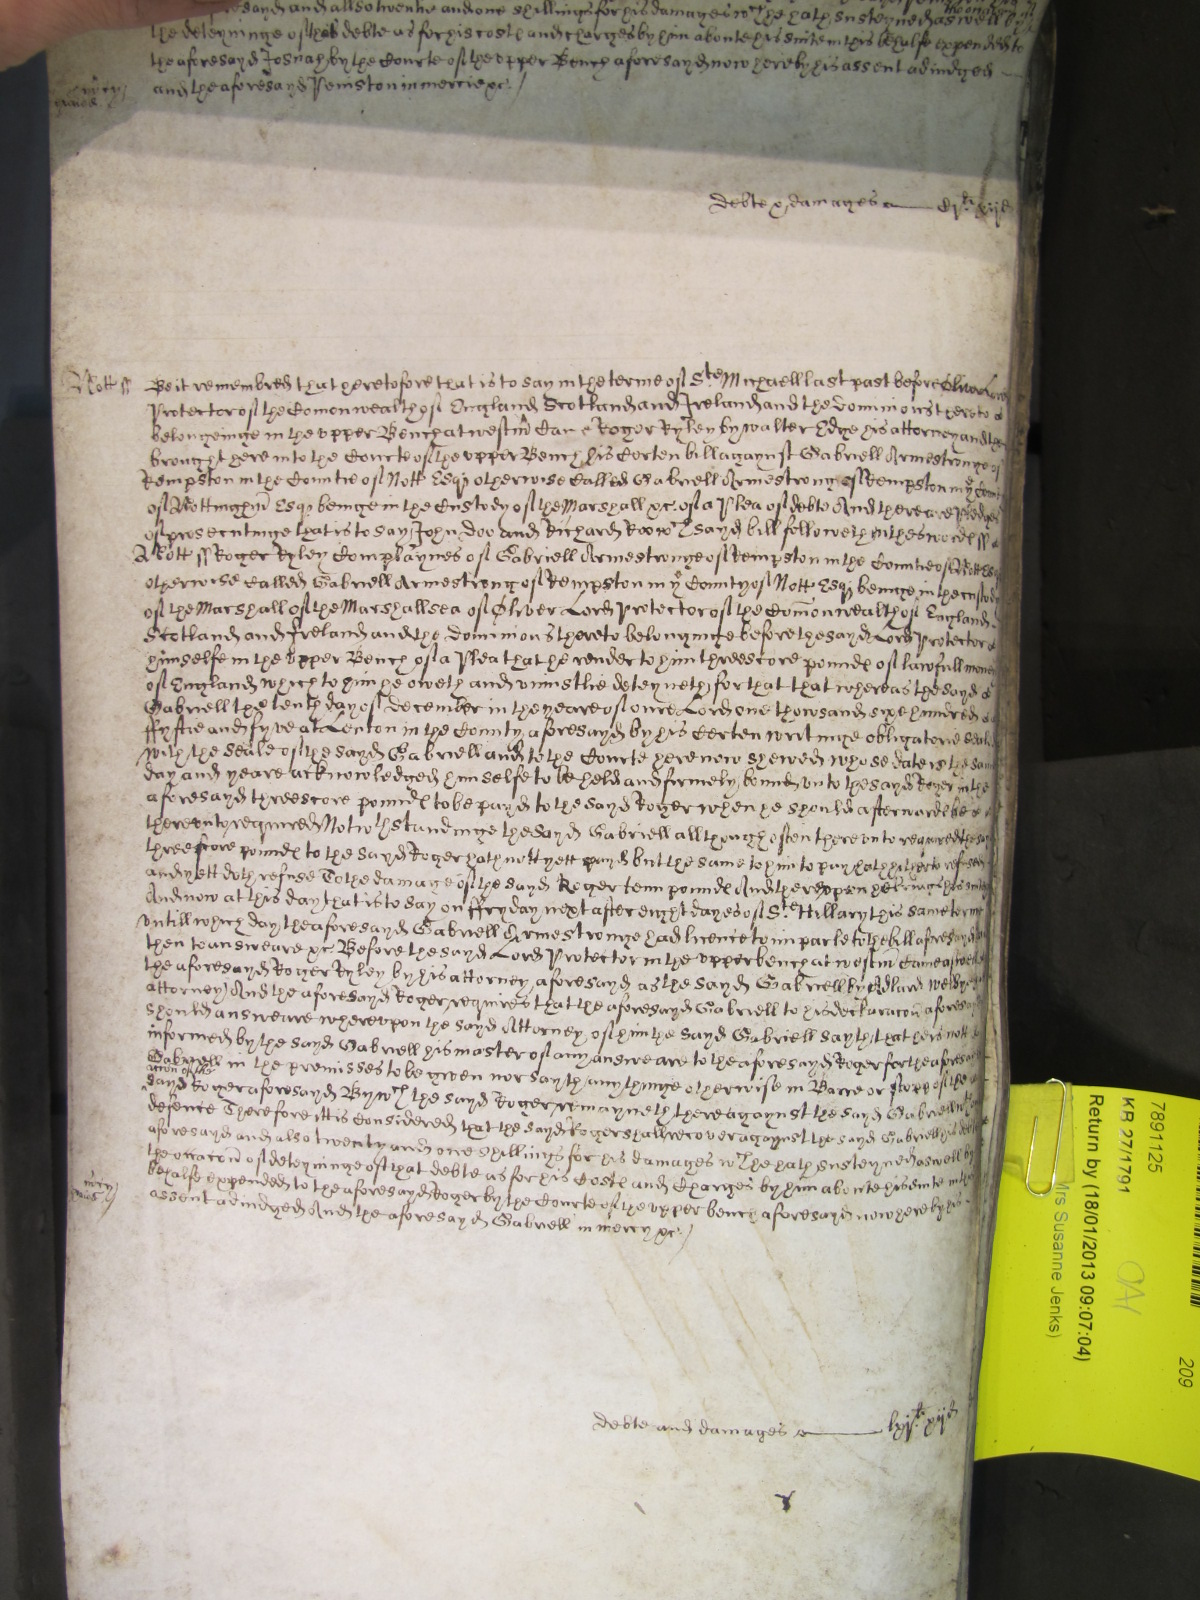 aforesayd and allso twentie and one shillings for his damages wch he hath susteyned aswell by
the deteyninge of that debte as for his costs and charges by him aboute his suite in this behalfe expended to
the aforesayd Josuah by the Courte of the vpper Bench aforesayd now here by his assent adiudged
and the aforesayd Peniston in mercie &c
mercy
debte & damages
Nott ss Be it remembred that heretofore that is to say in the terme of Ste Michaell last past before Oliver Lord
Protector of the Comonwealth of England Scotland and Ireland and the dominions thereto
belongeinge in the vpper Bench at westm Came Roger Ryley by walter Edge his attorney and then
brought here into the Courte of the vpper Bench his Certen bill agaynst Gabriell Armestronge of
Rempston in the Countie of Nott Esqr otherwise Called Gabriell Armestrong of Rempston in ye County
of Nottingham Esqr beinge in the Custody of the Marshall &c. of a Plea of debte And there are pledges
of prosecutinge that is to say John Doo and Richard Roo wch sayd bill followeth in thes words ss
Nott ss Roger Ryley Complaynes of Gabriell Armestronge of Rempston in the Countie of Nott Esqr
otherwise Called Gabriell Armestrong of Rempston in ye County of Nott Esqr beinge in the custody
of the Marshall of the Marshallsea of Oliver Lord Protector of the Comonwealth of England
Scotland and Ireland and the dominions thereto belonginge before the sayd Lord Protector
himselfe in the vpper Bench of a Plea that he render to him threescore pounds of lawfull money
of England which to him he oweth and vniustlie deteyneth, for that that whereas the sayd
Gabriell the tenth day of December in the yeare of oure Lord one thowsand sixe hundred
ffyftie and fyve at Lenton in the County aforesayd by his Certen writinge obligatorie sealed
with the seale of the sayd Gabriell and to the Courte here now shewed whose date is the same
day and yeare acknowledged himselfe to be held and firmely bound vnto the sayd Roger in the
aforesayd threescore pounds to be payd to the sayd Roger when he should afterwards be
therevnto required Notwthstandinge the sayd Gabriell allthough often there vnto required the sayd
threescore pounds to the sayd Roger hath nott yett payd but the same to him to pay hath hitherto refused
and yett doth refuse To the damage of the sayd Roger tenn pounds And therevpon he brings his suite
And now at this day that is to say on ffryday next after eight dayes of Ste Hillary this same terme
Vntill which day the aforesayd Gabriell Armestronge had licence to imparle to the bill aforesayd and
then to answeare &c Before the sayd Lord Protector in the vpper bench at westm Came aswell
the aforesayd Roger Ryley by his attorney aforesayd as the sayd Gabriell by Adlard Welby his
attorney And the aforesayd Roger requires that the aforesayd Gabriell to his declaracon aforesayd
should answeare wherevpon the sayd Attorney of him the sayd Gabriell sayth that he is nott
informed by the sayd Gabriell his master of any answeare to the aforesayd Roger for the aforesayd
Gabriell in the premisses to be given nor sayth any thinge otherwise in Barre or stopp of the
action of the
sayd Roger aforesayd By wch the sayd Roger remayneth there agaynst the sayd Gabriell without
defence Therefore itt is Considered that the sayd Roger shall recover agaynst the sayd Gabriell his debte
aforesayd and also twenty and one shillings for his damages wch he hath susteyned aswell by
the occacon of deteyninge of that debte as for his Costs and Charges by him aboute his suite in this
behalfe expended to the aforesayd Roger by the Courte of the vpper bench aforesayd now here by his
assent adiudged And the aforesayd Gabriell in mercy &c
mercy
debte and damages lxjli xijd
7891125
KB 27/1791
Return by (18/01/2013 09:07:04)
Mrs Susanne Jenks)
209